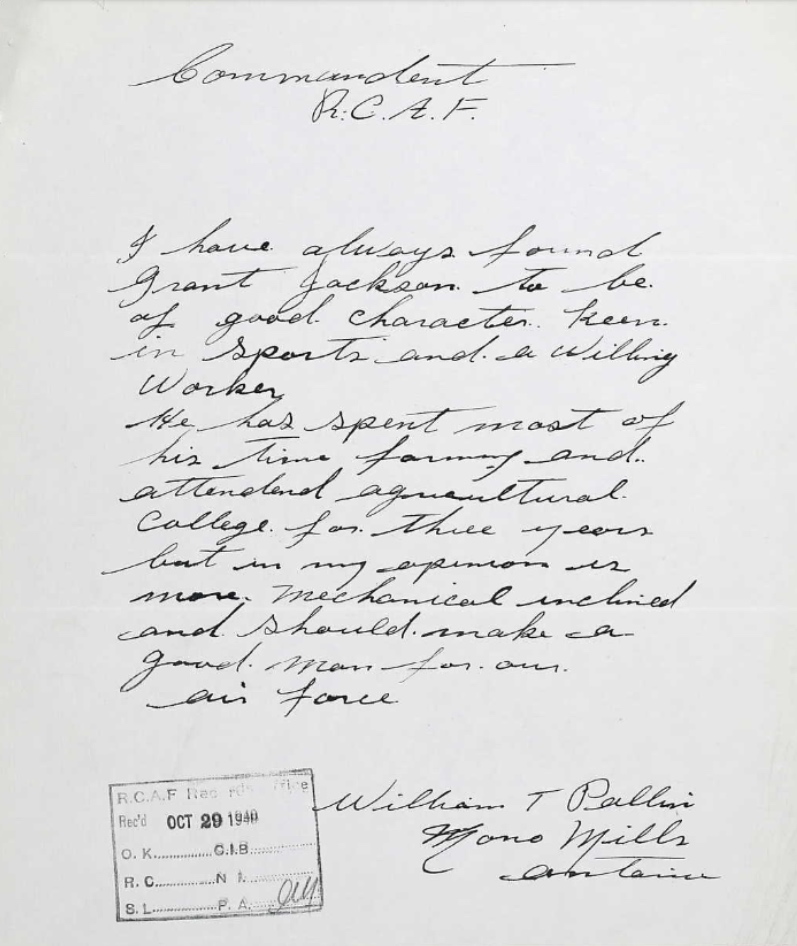 Commandent
R.C.A.F.
I have always found
Grant Jackson to be
of good character. keen
in sports and a willing
worker
He has spent most of
his time farming and
attendend agricultural
College for three years
but in my opinion is
more mechanical inclined
and should make a
good man for our
air force
William T Pallin
Mono Mills
Ontario
R.C.A.F Records Office
Rec'd OCT 29 1940
O. K. .............. C.I.B. ..............
R. C. .............. N I. ..............
S. L. .............. P. A. ..............